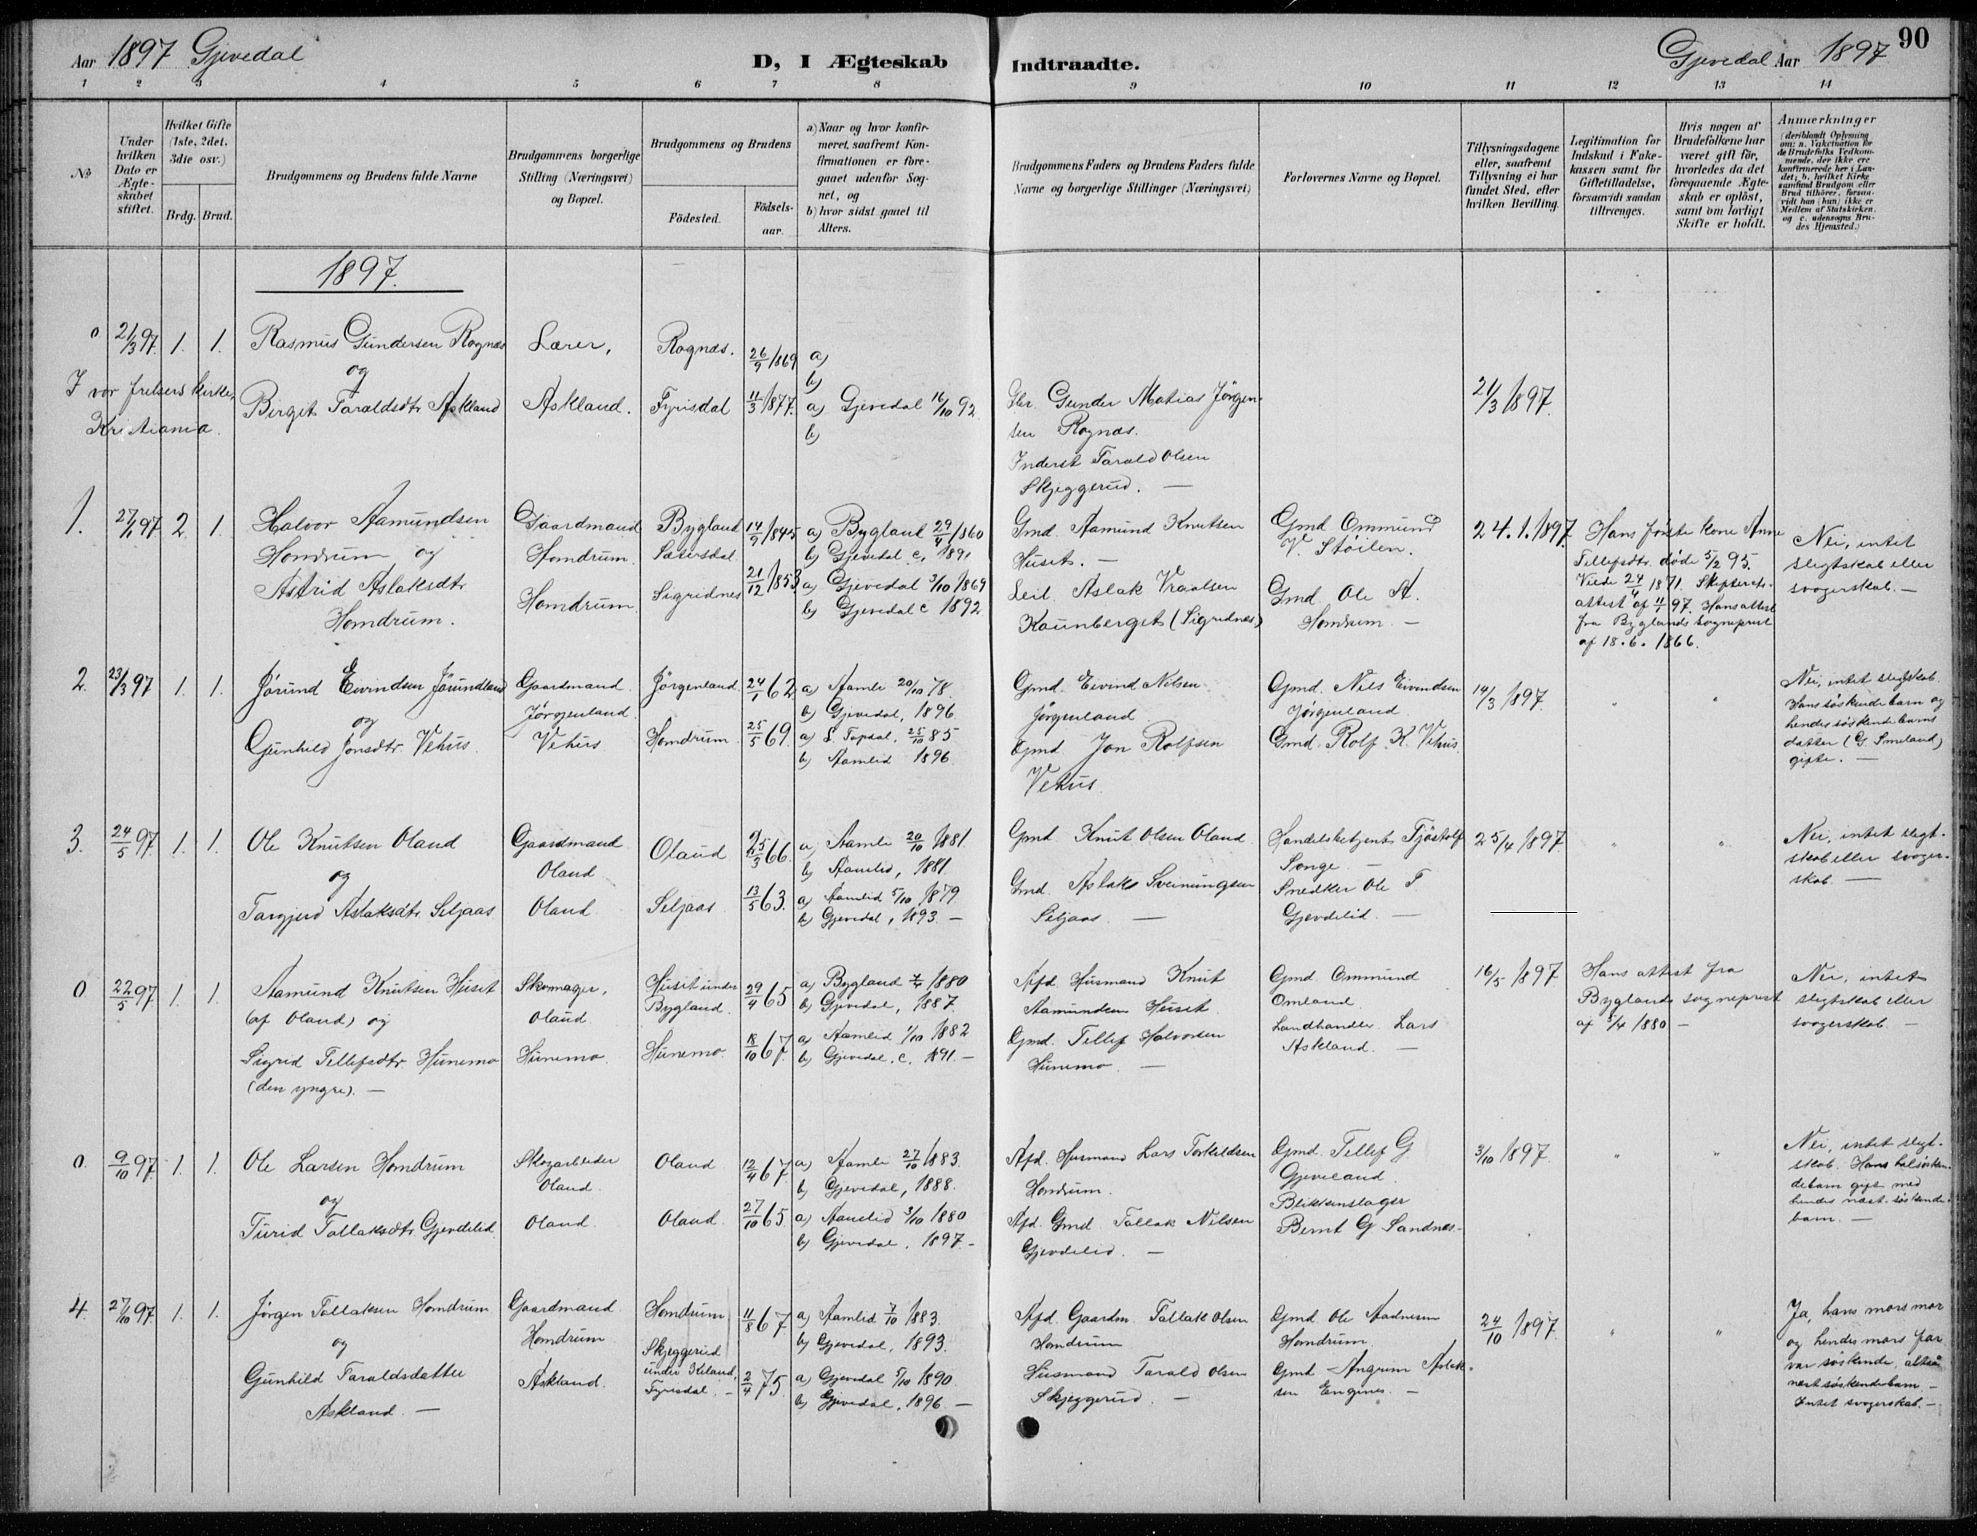 Aar 1897 Gjevedal
D, I Ægteskab Indtraadte.
Gjevedal Aar 1897
90
1 2 3 4 5 6 7 8 9 10 11 12 13 14
No
Under hvilken Dato er Ægteskabet stiftet.
Hvilket Gifte (1ste, 2det, 3die osv.)
Brdg. Brud.
Brudgommens og Brudens fulde Navne
Brudgommens borgerlige Stilling (Næringsvei) og Bopæl.
Brudgommens og Brudens
Födested. Födsels-aar.
a) Naar og hvor konfirmeret, saafremt Konfirmationen er foregaaet udenfor Sognet, og
b) hvor sidst gaaet til Alters.
Brudgommens Faders og Brudens Faders fulde Navne og borgerlige Stillinger (Næringsvei)
Forlovernes Navne og Bopæl.
Tillysningsdagene eller, saafremt Tillysning ei har fundet Sted, efter hvilken Bevilling
Legitimation for Indskud i Enkekassen samt for Giftetilladelse, forsaavidt saadan tiltrænges.
Hvis nogen af Brudefolkene har været gift för, hvorledes da det foregaaende Ægteskab er oplöst, samt om lovligt Skifte er holdt.
Anmerkninger
(deriblandt Oplysning om: a. Vakcination for de Brudefolks Vedkommende, der ikke ere konfirmerede her i Landet; b. hvilket Kirkesamfund Brudgom eller Brud tilhörer, forsaavidt han (hun) ikke er Medlem af Statskirken, og c. udensogns Brudes Hjemsted.)
1897.
0 21/3 97. 1. 1. Rasmus Gundersen Rognæs Lærer, Rognæs. 26/9 1869 a)
og b)
I vor frelsers kirke, Kristiania.
Birgit Taraldsdtr Askland Askland. Fyrisdal 11/3 1877. a) Gjevedal 16/10 92.
b)
Gbr. Gunder Matias Jörgensen Rognæs.
Inderst Tarald Olsen Skjeggerud. —
21/3 1897.
1. 27/1 97 2. 1. Halvor Aamundsen Gaardmand Bygland 14/9 1845 a) Bygland 29/4 1860
Homdrum og Homdrum. Sætersdal. b) Gjevedal c, 1891
Astrid Aslaksdtr Homdrum Sigridnes 21/12 1853 a) Gjevedal 3/10 1869
Homdrum. b) Gjevedal c 1892.
Gmd. Aamund Knutsen Huset. —
Leil. Aslak Vraalsen Kaunberget (Sigridnes)
Gmd Ommund V. Stöilen.
Gmd Ole A. Homdrum —
24.1.1897.
Hans förste kone Anne
Tellefsdtr. döde 5/2 95.
Viede 24/4 1871. Skifterets-
attest af 11/1 97. Hans attest
fra Byglands sogneprest
af 18.6.1866.
Nei, intet
slegtskab eller
svogerskab. —
2. 23/3 97 1. 1. Jörund Eivindsen Jörundland Gaardmand Jörgenland 24/1 62 a) Aamli 20/10 78.
og Jörgenland. b) Gjevedal, 1896.
Gunhild Jonsdtr Vehus. Vehus Homdrum 25/5 69. a) S. Topdal, 25/10 85
b) Aamlid 1896.
Gmd. Eivind Nilsen Jörgenland
Gmd Jon Rolfsen Vehus.
Gmd. Nils Eivindsen Jörgenland
Gmd. Rolf K. Vehus.
14/3 1897.
Nei, intet slegtskab.
Hans söskendebarn og
hendes söskendebarns
datter (G. Smeland)
gifte. —
3. 24/5 97 1. 1. Ole Knutsen Oland Gaardmand Oland 25/3 66. a) Aamli 20/10 1881.
og Oland b) Aamlid, 1881.
Targjerd Aslaksdtr Seljaas Oland Seljaas 13/5 63. a) Aamlid 5/10 1879.
b) Gjevedal, 1893. —
Gmd Knut Olsen Oland
Gmd. Aslak Sveinungsen Seljaas —
Handelsbetjent Tjöstolf Songe —
Snedker Ole T Gjevdelid. —
25/4 1897
Nei, intet slegt-
skab eller svoger-
skab. —
0 22/5 97 1. 1. Aamund Knutsen Huset Skomager, Huset under 29/4 65 a) Bygland 1880
(af Oland) og Oland Bygland b) Gjevedal, 1887.
Sigrid Tellefsdtr Hunemo Hunemo Hunemo 18/10 67 a) Aamlid 1/10 1882
(den yngre). — b) Gjevedal, c. 1891. —
Afd. Husmand Knut Aamundsen Huset
Gmd. Tellef Halvorsen Hunemo —
Gmd Ommund Omland.
Landhandler Lars Askland. —
16/5 1897
Hans attest fra
Byglands sogneprest
af 5/4 1880 —
Nei, intet
slegtskab eller
svogerskab. —
0. 9/10 97 1. 1. Ole Larsen Homdrum Skogarbeider Oland 12/4 67. a) Aamli 27/10 1883.
og Oland. b) Gjevedal, 1888.
Turid Tallaksdtr Gjevdelid Oland. Oland. 27/10 65 a) Aamlid 3/10 1880
b) Gjevedal, 1897. —
Afd. Husmand Lars Torkeldsen Homdrum.
Afd. Gmd. Tallak Nilsen Gjevdelid. —
Gmd. Tellef G Gjeveland.
Blikkenslager Bernt G. Sandnes. —
3/10 1897.
Nei, intet slegt-
skab. Hans halvsösken-
debarn gift med
hendes næst. söskende-
barn. —
4. 27/10 97. 1. 1. Jörgen Tallaksen Homdrum Gaardmand Homdrum 11/8 67 a) Aamlid 7/10 1883.
og Homdrum b) Gjevedal, 1893.
Gunhild Taraldsdatter Askland. Skjeggerud under Kiland, Fyrisdal. — 2/4 75. a) Gjevedal 5/10 1890.
Askland. — b) Gjevedal, 1896 —
Afd. Gaardm. Tallak Olsen Homdrum
Husmand Tarald Olsen Skjeggerud —
Gmd Ole Aadnesen Homdrum
Gmd Angrim Aslaksen Engines. —
24/10 1897.
Ja, hans mors mor
og hendes mors far
var söskende, altsaa
næst söskendebarn. —
Intet svogerskab. —